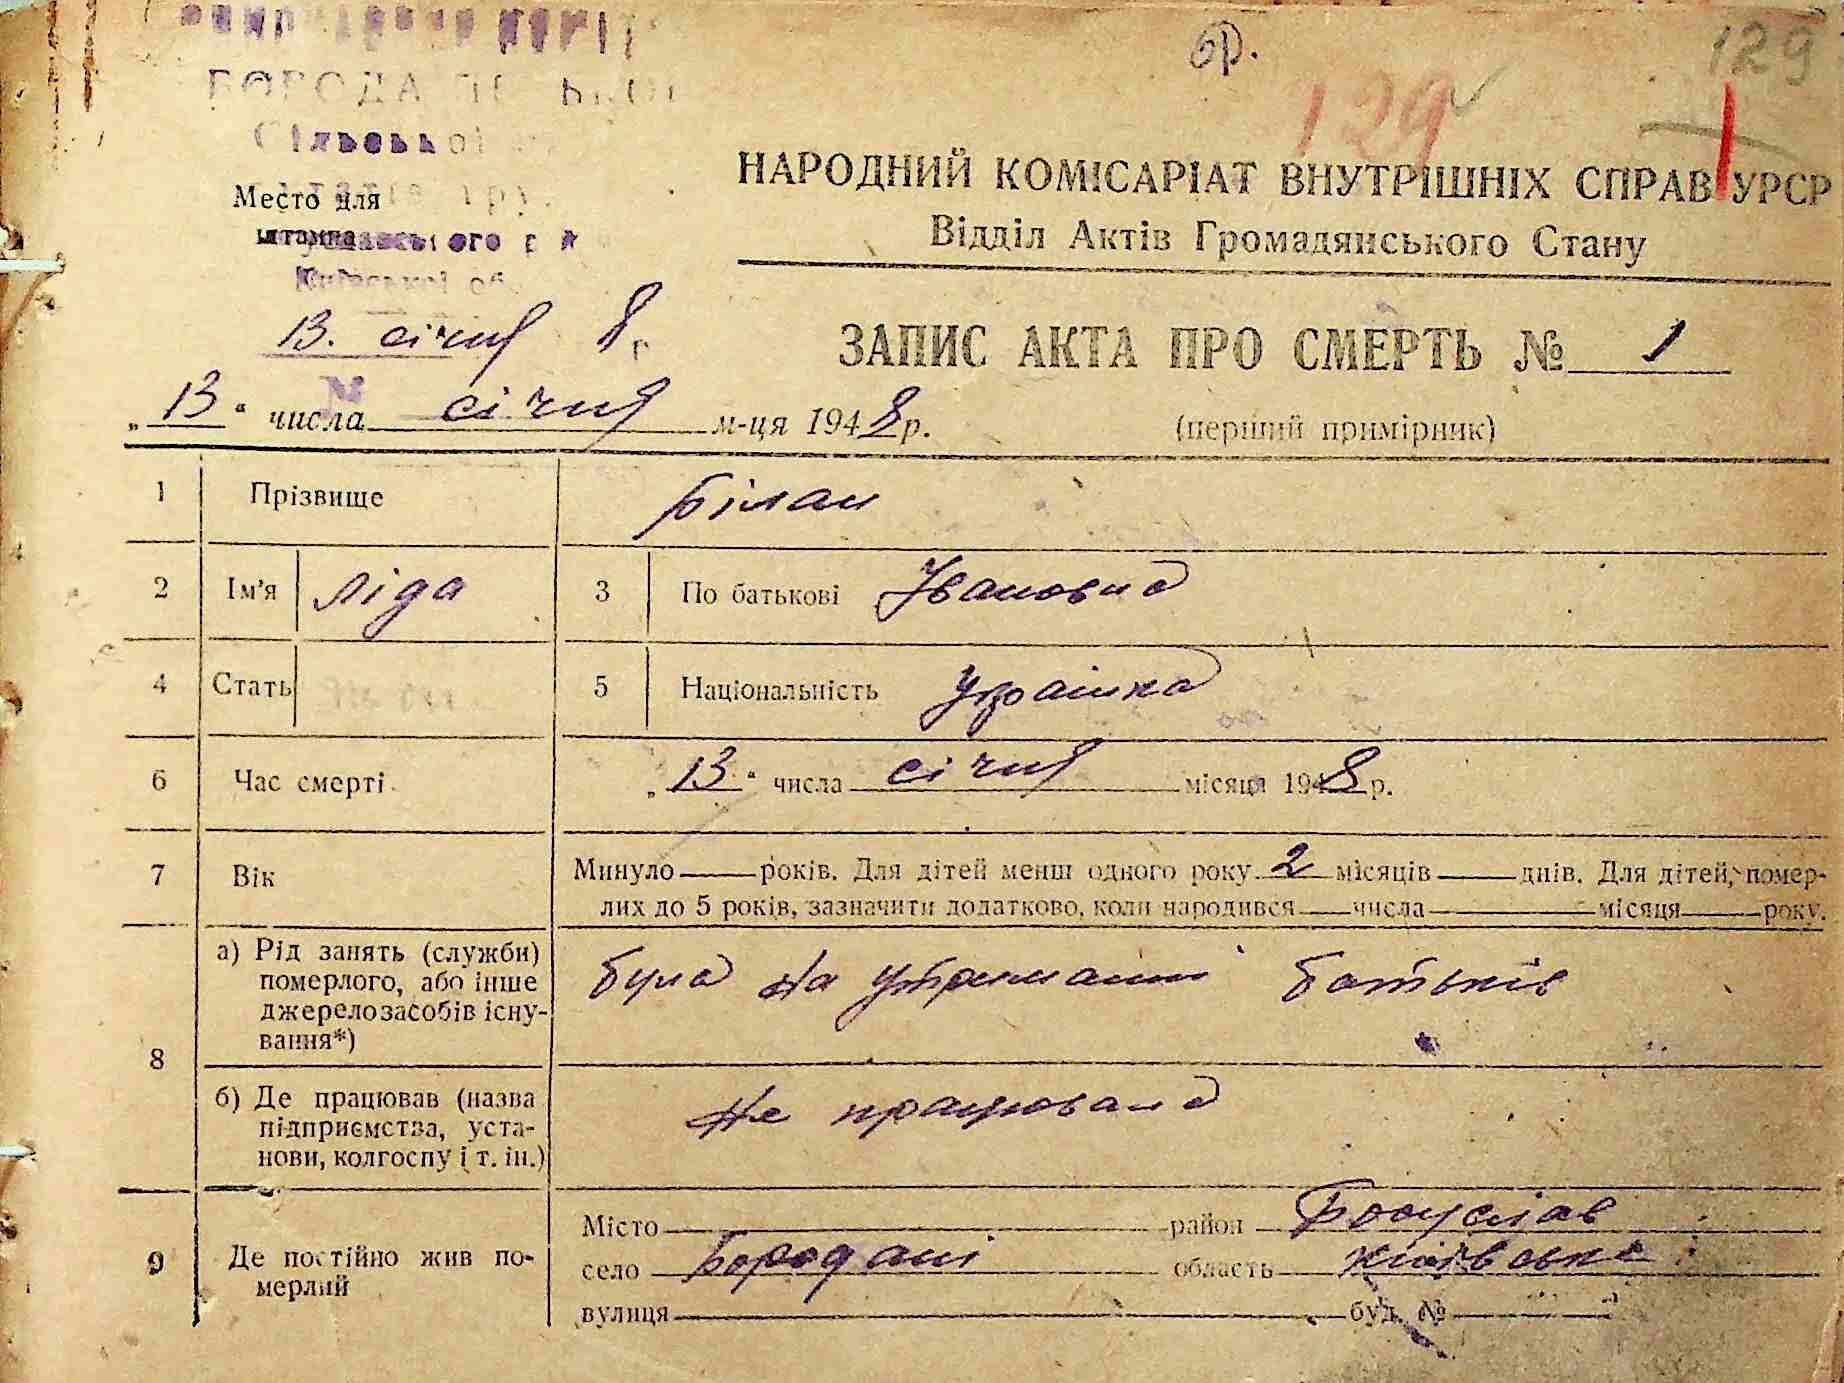 бр.
129
129
Сільської
Место для
штампа
Київської об
НАРОДНИЙ КОМІСАРІАТ ВНУТРІШНІХ СПРАВ УРСР
Відділ Актів Громадянського Стану
13. січня 8 г
ЗАПИС АКТА ПРО СМЕРТЬ № 1
№
„13“ числа січня м-ця 1948 р.
(перший примірник)
1 Прізвище Білан
2 Ім'я Ліда 3 По батькові Івановна
4 Стать 5 Національність Українка
6 Час смерті „13“ числа січня місяця 1948 р.
7 Вік Минуло — років. Для дітей менш одного року 2 місяців — днів. Для дітей, помер-
лих до 5 років, зазначити додатково, коли народився — числа — місяця — року.
8 а) Рід занять (службу)
померлого, або інше
джерело засобів існу-
вання*)
була на утриманні батьків
б) Де працював (назва
підприємства, уста-
нови, колгоспу і т. ін.)
не працювала
9 Де постійно жив по-
мерлий
Місто район Богуслав
село Бородані область Київська
вулиця буд. №